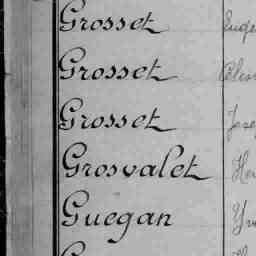 Grosset
Grosset
Grosset
Grosvalet
Guegan